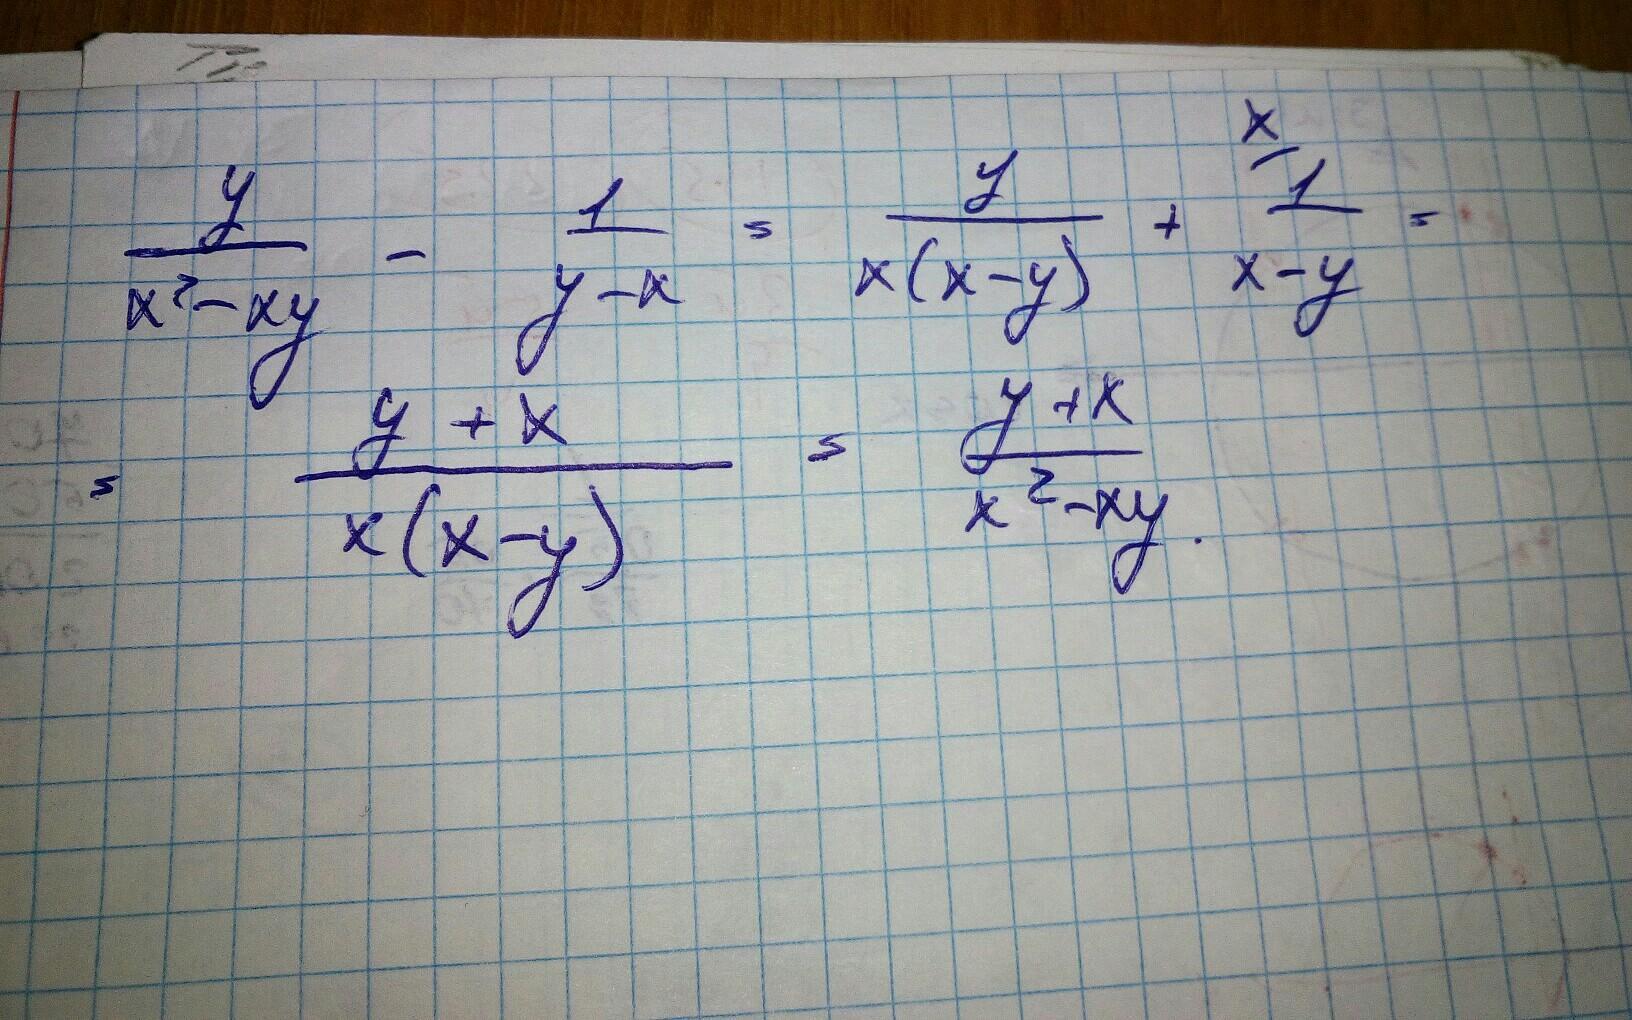 y/(x²-xy) - 1/(y-x) = y/(x(x-y)) + x/ 1/(x-y) =
= (y+x)/(x(x-y)) = (y+x)/(x²-xy).